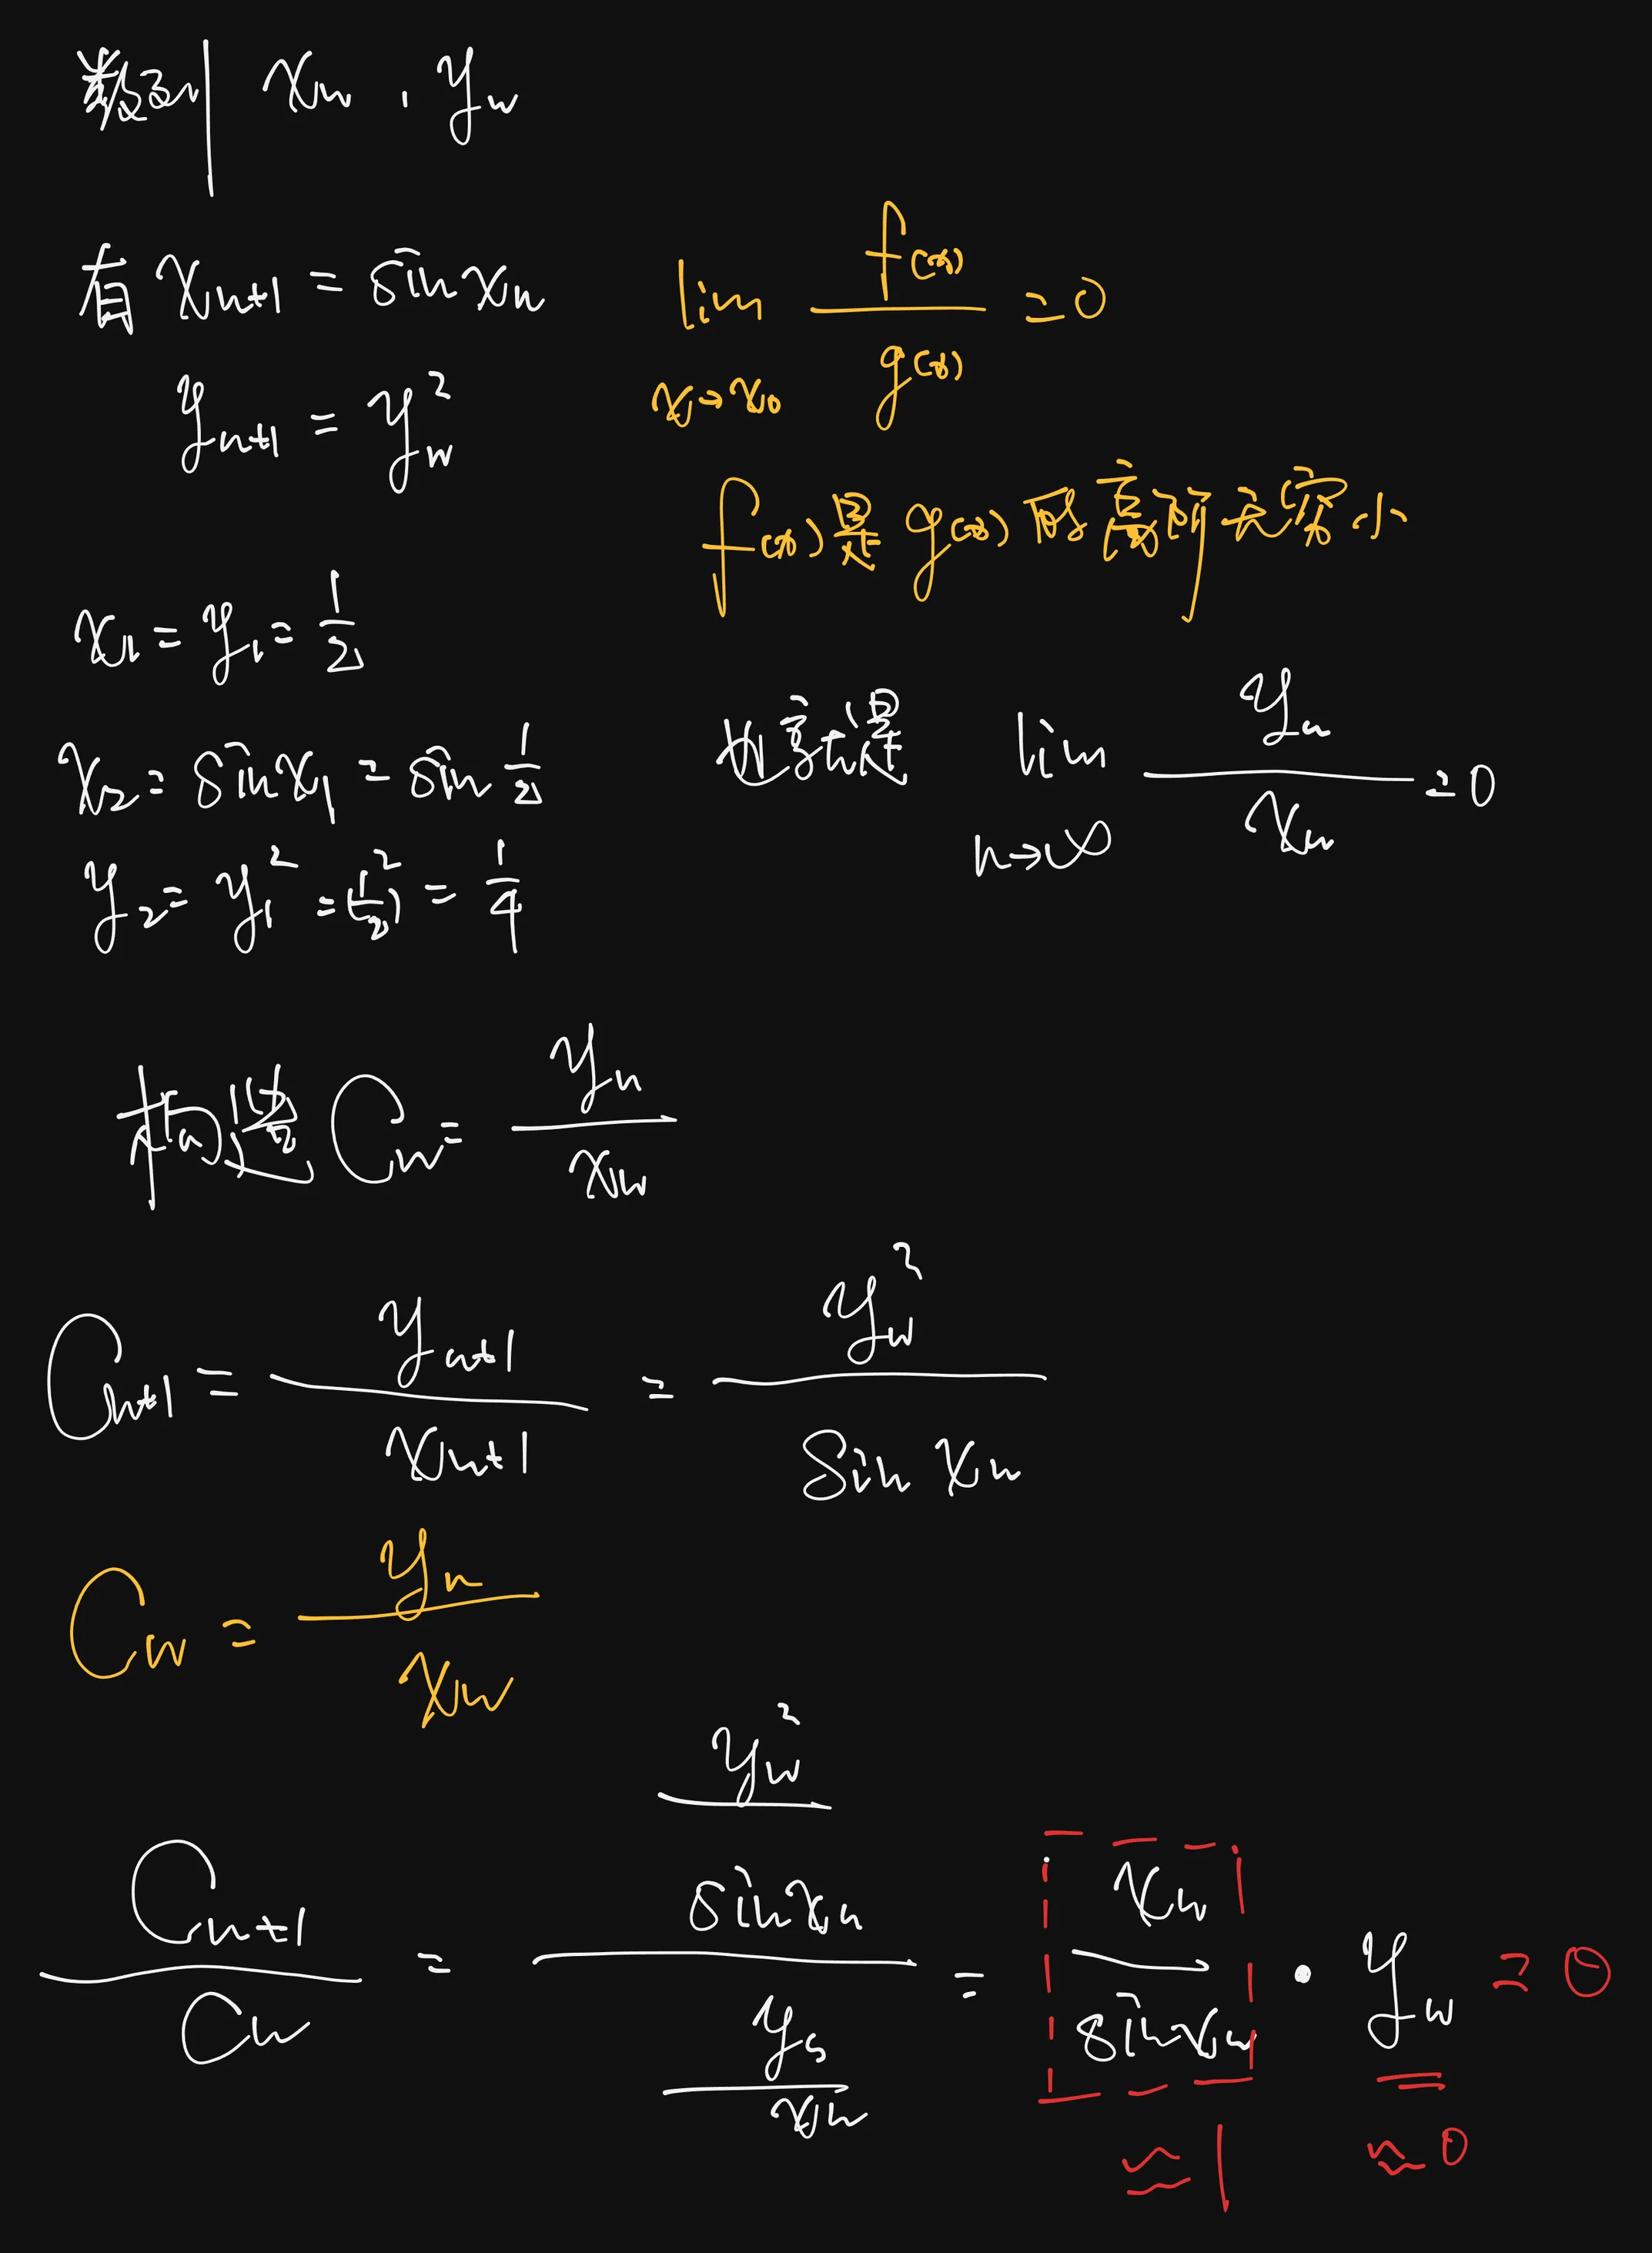 数列 xₙ , yₙ
有 xₙ₊₁ = sin xₙ
yₙ₊₁ = yₙ²
lim x→x₀ f(x)/g(x) = 0
f(x) 是 g(x) 的高阶无穷小
x₁ = y₁ = 1/2
x₂ = sin x₁ = sin 1/2
y₂ = y₁² = (1/2)² = 1/4
也就是 lim n→∞ yₙ/xₙ = 0
构造 Cₙ = yₙ/xₙ
Cₙ₊₁ = yₙ₊₁/xₙ₊₁ = yₙ²/sin xₙ
Cₙ = yₙ/xₙ
Cₙ₊₁/Cₙ = (yₙ²/sin xₙ)/(yₙ/xₙ) = xₙ/sin xₙ · yₙ = 0
≈ 1 ≈ 0